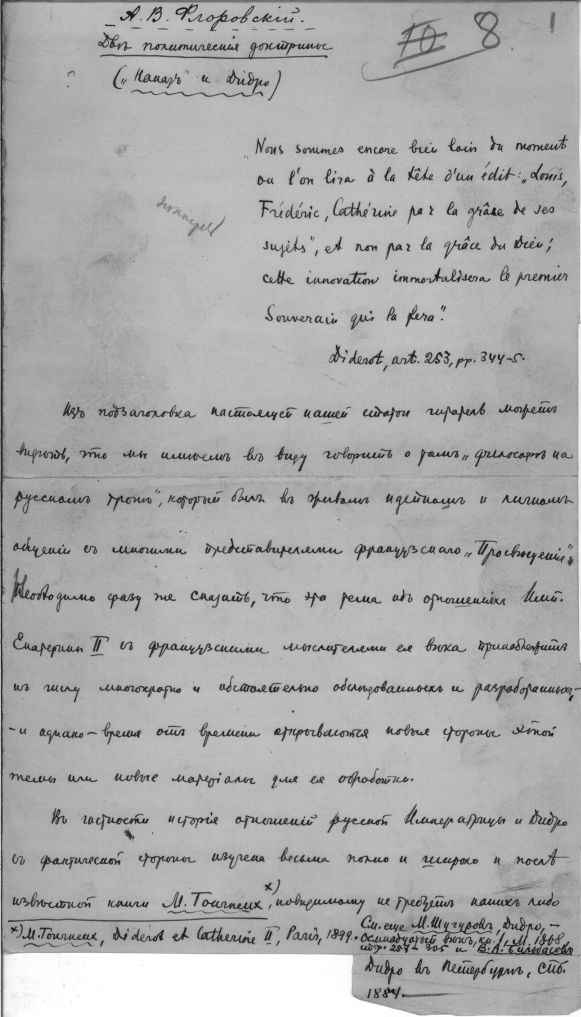 А. В. Флоровскій.
10 8 1
Двѣ политическія доктрины
(„Наказъ" и Дидро)
„Nous sommes encore bien loin du moment
ou l'on lira à la tête d'un édit: „Louis,
Frédéric, Cathérine par la grâse de ses
sujets", et non par la grâce du Dieu;
cette innovation immortalisera le premier
Souverain qui la fera".
Diderot, art. 253, pp. 344-5.
Изъ подзаголовка настоящей нашей статьи читатель можетъ
видѣть, что мы имѣемъ въ виду говорить о томъ „философѣ на
русскомъ тронѣ", который былъ въ живомъ идейномъ и личномъ
общеніи съ многими представителями французскаго „Просвѣщенія".
Необходимо сразу же сказать, что эта тема объ отношеніяхъ Имп.
Екатерины II съ французскими мыслителями ея вѣка принадлежитъ
къ числу многократно и обстоятельно обслѣдованныхъ и разработанныхъ, -
- и однако - время отъ времени открываются новыя стороны этой
темы или новые матеріалы для ея обработки.
Въ частности исторія отношеній русской Императрицы и Дидро
съ фактической стороны изучена весьма полно и широко и послѣ
извѣстной книги М. Tourneux х), повидимому не требуетъ какихъ либо
х) М. Tourneux, Diderot et Catherine II, Paris, 1899.
См. еще М. Шугуровъ, Дидро, -
Осмнадцатый вѣкъ, кн. I, М. 1868
стр. 257-305 и В. А. Бильбасовъ
Дидро въ Петербургѣ, Спб.
1884.